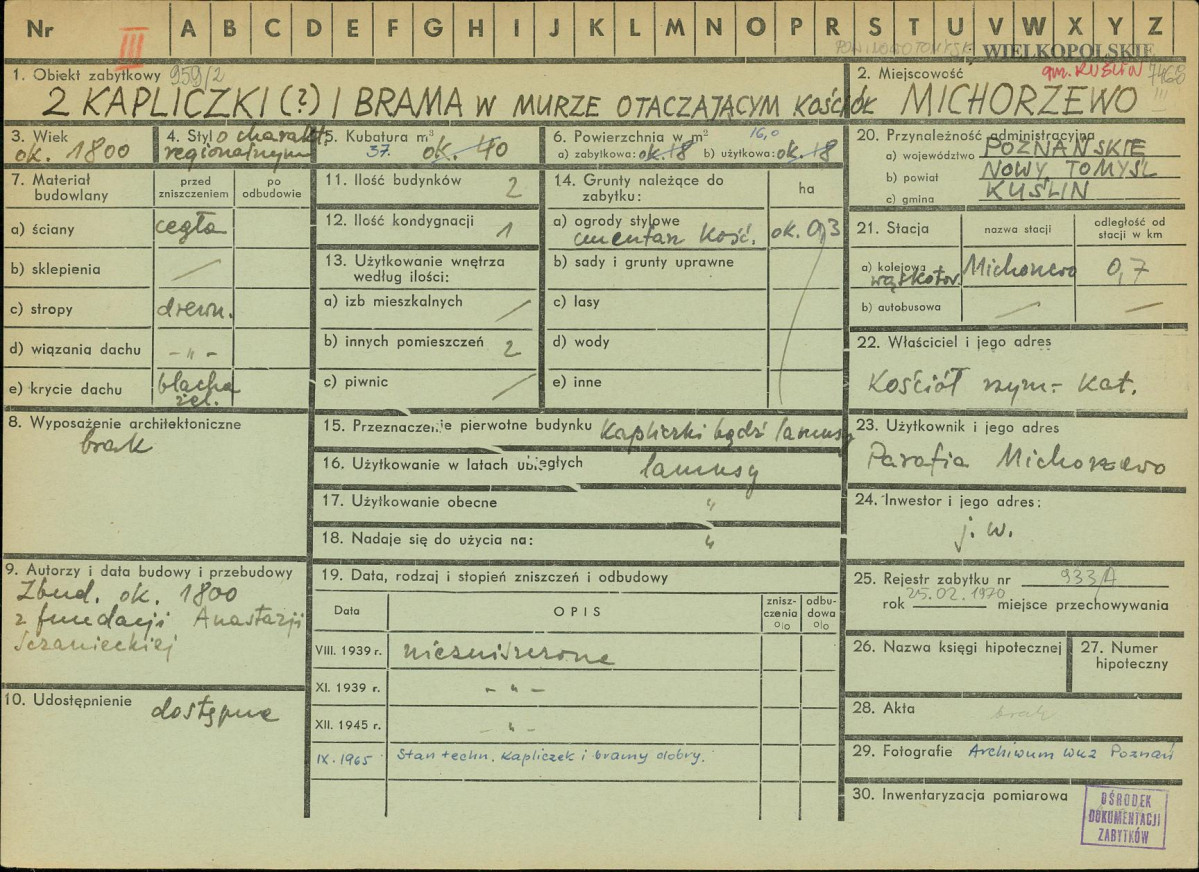 Nr III A B C D E F G H I J K L M N O P R S T U V W X Y Z
WIELKOPOLSKIE
1. Obiekt zabytkowy 959/2
2 KAPLICZKI (?) I BRAMA W MURZE OTACZAJĄCYM KOŚCIÓŁ
2. Miejscowość gm. KUŚLIN 7468
III
MICHORZEWO
3. Wiek
ok. 1800
4. Styl o charakt.
regionalnym
5. Kubatura m³
37. ok. 40
6. Powierzchnia w m² 16,0
a) zabytkowa: ok. 18 b) użytkowa: ok. 18
7. Materiał budowlany
przed zniszczeniem
po odbudowie
a) ściany cegła
b) sklepienia /
c) stropy drewn.
d) wiązania dachu -„-
e) krycie dachu blacha
żel.
8. Wyposażenie architektoniczne
brak
9. Autorzy i data budowy i przebudowy
Zbud. ok. 1800
z fundacji Anastazji
Sczanieckiej
10. Udostępnienie dostępne
11. Ilość budynków 2
12. Ilość kondygnacji 1
13. Użytkowanie wnętrza
według ilości:
a) izb mieszkalnych /
b) innych pomieszczeń 2
c) piwnic /
14. Grunty należące do
zabytku:
ha
a) ogrody stylowe
cmentarz kość. ok. 0,3
b) sady i grunty uprawne
c) lasy
d) wody
e) inne
15. Przeznaczenie pierwotne budynku kapliczki bądź lamusy
16. Użytkowanie w latach ubiegłych lamusy
17. Użytkowanie obecne „
18. Nadaje się do użycia na: „
19. Data, rodzaj i stopień zniszczeń i odbudowy
Data
OPIS
znisz-
czenia
o/o
odbu-
dowa
o/o
VIII. 1939 r. niezniszczone
XI. 1939 r. -„-
XII. 1945 r. -„-
IX. 1965 Stan techn. kapliczek i bramy dobry.
20. Przynależność administracyjna
a) województwo POZNAŃSKIE
b) powiat NOWY TOMYŚL
c) gmina KUŚLIN
21. Stacja
nazwa stacji
odległość od
stacji w km
a) kolejowa Michorzewo 0,7
wąskotor.
b) autobusowa — —
22. Właściciel i jego adres
Kościół rzym.- kat.
23. Użytkownik i jego adres
Parafia Michorzewo
24. Inwestor i jego adres:
j. w.
25. Rejestr zabytku nr 933/A
25.02.1970
rok miejsce przechowywania
26. Nazwa księgi hipotecznej
27. Numer
hipoteczny
28. Akta brak
29. Fotografie Archiwum WKZ Poznań
30. Inwentaryzacja pomiarowa
OŚRODEK
DOKUMENTACJI
ZABYTKÓW